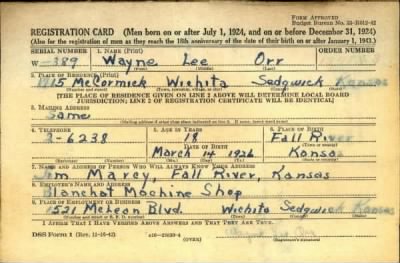 Form Approved
Budget Bureau No. 33-R012-42
REGISTRATION CARD—(Men born on or after July 1, 1924, and on or before December 31, 1924)
(Also for the registration of men as they reach the 18th anniversary of the date of their birth on or after January 1, 1943.)
SERIAL NUMBER 1. NAME (Print) ORDER NUMBER
W-389 Wayne Lee Orr
(First) (Middle) (Last)
2. PLACE OF RESIDENCE (Print)
1915 McCormick Wichita Sedgwick Kansas
(Number and street) (Town, township, village, or city) (County) (State)
[THE PLACE OF RESIDENCE GIVEN ON LINE 2 ABOVE WILL DETERMINE LOCAL BOARD
JURISDICTION; LINE 2 OF REGISTRATION CERTIFICATE WILL BE IDENTICAL]
3. MAILING ADDRESS
Same
4. TELEPHONE 5. AGE IN YEARS 6. PLACE OF BIRTH
2-6238 18 Fall River
DATE OF BIRTH
March 14 1926 Kansas
(Mo.) (Day) (Yr.)
7. NAME AND ADDRESS OF PERSON WHO WILL ALWAYS KNOW YOUR ADDRESS
Jim Marcy, Fall River, Kansas
8. EMPLOYER'S NAME AND ADDRESS
Blanchat Machine Shop
9. PLACE OF EMPLOYMENT OR BUSINESS
1521 McLean Blvd. Wichita Sedgwick Kansas
(County) (State)
I AFFIRM THAT I HAVE VERIFIED ABOVE ANSWERS AND THAT THEY ARE TRUE.
DSS Form 1 (Rev. 11-16-42) (OVER)